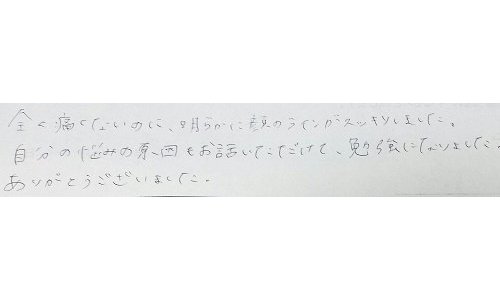 全く痛くないのに、明らかに顔のラインがスッキリしました。
自分の悩みの原因もお話いただけて、勉強になりました。
ありがとうございました。